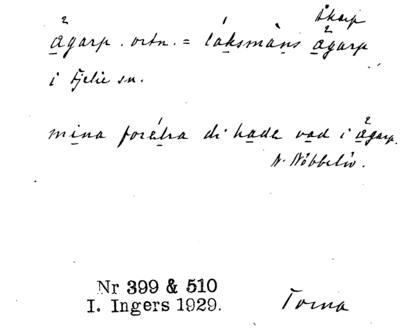 Åkarp
ågarp. ortn. = láksmàns ågarp
i Fjelie sn.
mina foréldra di hade vad i ågarp.
N. Nöbbelöv.
Nr 399 & 510
I. Ingers 1929.
Torna